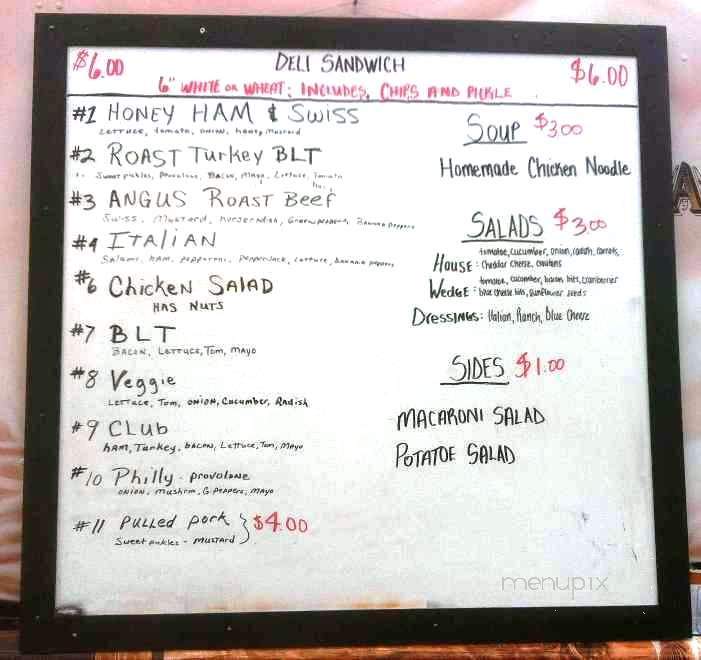 $6.00 DELI SANDWICH $6.00
6" WHITE OR WHEAT; INCLUDES, CHIPS AND PICKLE
#1 HONEY HAM & SWISS
LETTUCE, tomato, onion, honey mustard
#2 ROAST Turkey BLT
Sweet pickles, Provolone, Bacon, Mayo, Lettuce, Tomato
#3 ANGUS ROAST Beef
Swiss, Mustard, horseradish, Green peppers, Banana peppers
#4 ITALIAN
Salami, ham, pepperoni, PepperJack, Lettuce, banana peppers
#6 Chicken SALAD
HAS NUTS
#7 BLT
BACON, LETTUCE, Tom, MAYO
#8 Veggie
LETTUCE, Tom, ONION, Cucumber, Radish
#9 CLUB
HAM, Turkey, BACON, Lettuce, Tom, MAYO
#10 Philly - provolone
ONION, Mushrm, G. Peppers, MAYO
#11 PULLED pork } $4.00
Sweet pickles - MUSTARD
SOUP $3.00
Homemade Chicken Noodle
SALADS $3.00
tomatoe, cucumber, onion, radish, carrots,
HOUSE: cheddar cheese, croutons
tomatoe, cucumber, bacon bits, cranberries
WEDGE: blue cheese bits, sunflower seeds
DRESSINGS: Italian, Ranch, Blue Cheese
SIDES $1.00
MACARONI SALAD
POTATOE SALAD
menupix